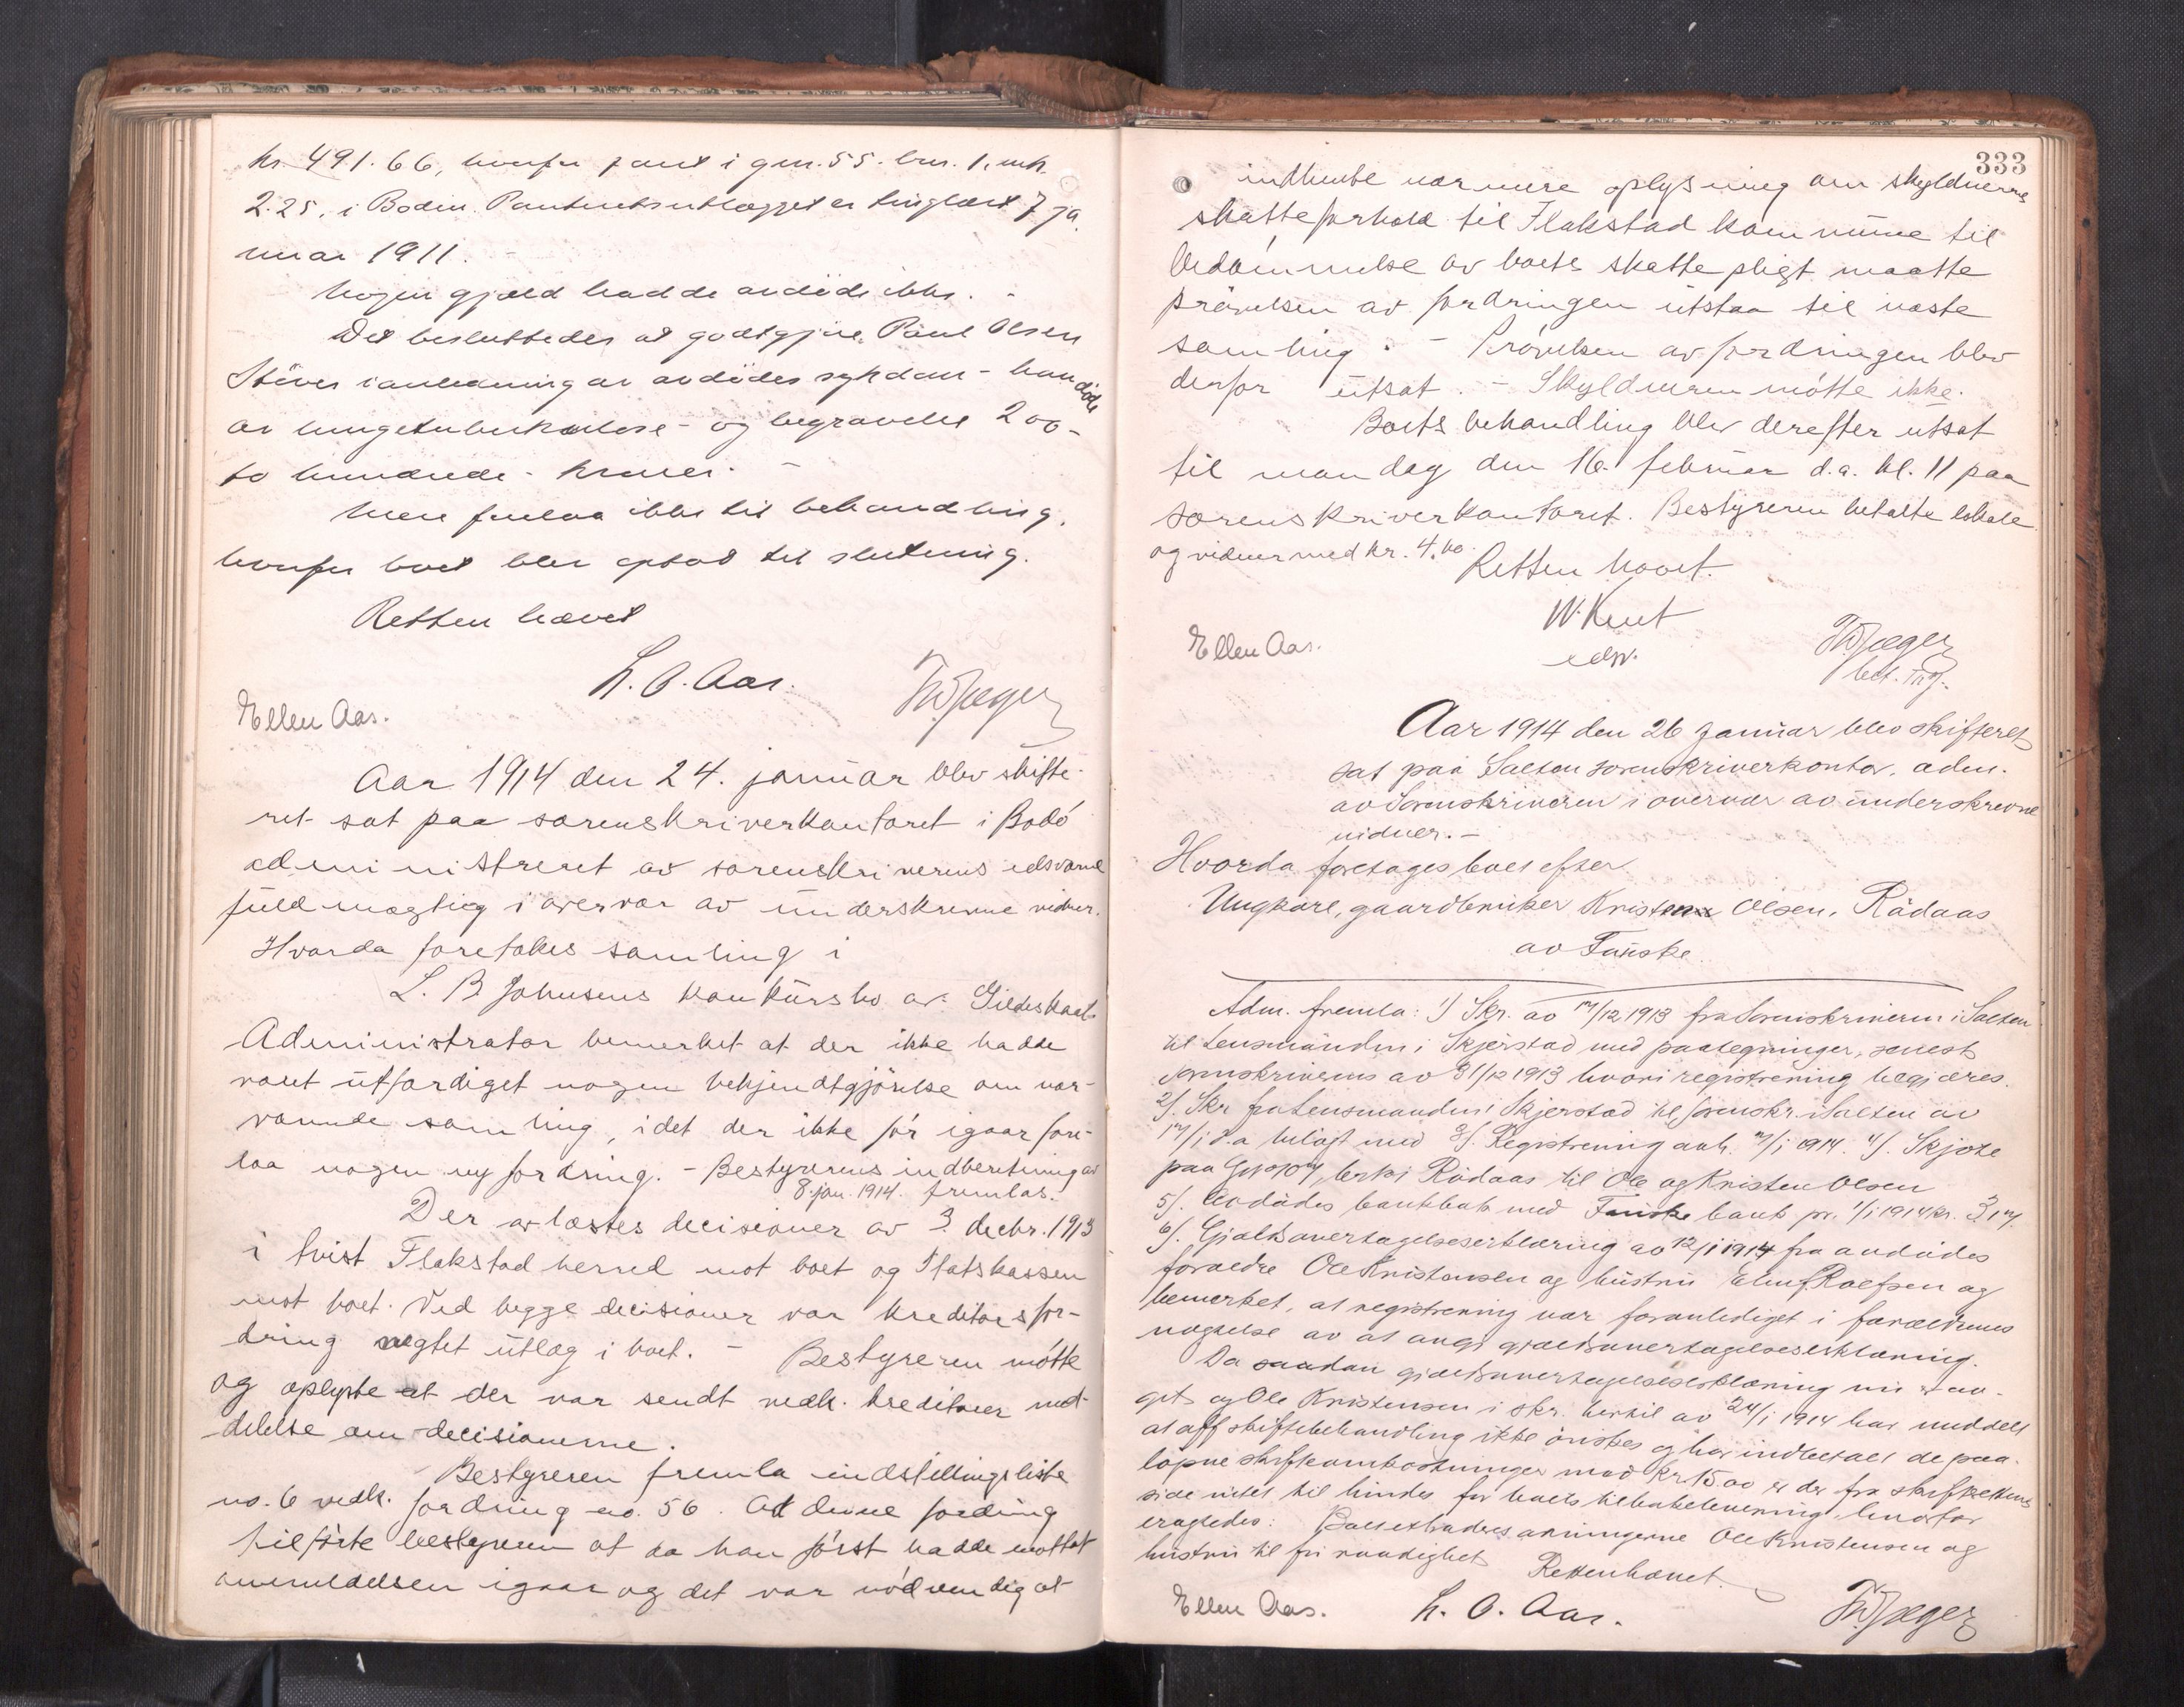 kr. 491.66, hvorfor pant i gnr. 55. brn. 1. mk.
2.25. i Bodin. Panteretsutlægget er tinglæst 7 ja.
nuar 1911. -
Nogen gjæld hadde avdöde ikke. -
Det besluttedes at godtgjöre Paul Olsen
Stöver i anledning av avdödes sykdom - han döde
av lungetuberkulose - og begravelse 200-
to hundrede - kroner. -
Mere forelaa ikke til behandling,
hvorfor boet blev optat til slutning.
Retten hævet
L. O. Aas.
ThJæger
Ellen Aas.
Aar 1914 den 24. januar blev skifte-
ret sat paa sorenskriverkontoret i Bodö
administreret av sorenskriverens edsvorne
fuldmægtig i overvær av underskrevne vidner.
Hvorda foretokes samling i
L. B. Johnsens konkursbo av Gildeskaal.
Administrator bemerket at der ikke hadde
været utfærdiget nogen bekjendtgjörelse om nær-
værende samling, idet der ikke för igaar fore-
laa nogen ny fordring. - Bestyrerens indberetning av
8. jan. 1914. fremlas.
Der avlæstes decisioner av 3. decbr. 1913
i tvist Flakstad herred mot boet og Statskassen
mot boet. Ved begge decisioner var kreditors for-
dring negtet utlæg i boet. - Bestyreren mötte
og oplyste at der var sendt vedk. kreditorer med-
delelse om decisionerne.
Bestyreren fremla indstillingsliste
no. 6 vedk. fordring no. 56. At denne fordring
tilförte bestyreren at da han först hadde mottat
anmeldelsen igaar og det var nödvendig at
333
indhente nærmere oplysning om skyldnerens
skatteforhold til Flakstad kommune til
bedömmelse av boets skattepligt maatte
prövelsen av fordringen utstaa til næste
samling. - Prövelsen av fordringen blev
derfor utsat. - Skyldneren mötte ikke.
Boets behandling blev derefter utsat
til mandag den 16. februar d.a. kl. 11 paa
sorenskriverkontoret. Bestyreren betalte lokale
og vidner med kr. 4.40.
Retten hævet.
W. Knut
edsv.
Ellen Aas.
ThJæger
Aar 1914 den 26 januar blev skifteret
sat paa Salten sorenskriverkontor, adm.
av Sorenskriveren i overvær av underskrevne
vidner. -
Hvorda foretages boet efter
Ungkarl, gaardbruker Kristen Olsen, Rödaas
av Fauske
Adm. fremla: 1) Skr. av 17/12 1913 fra Sorenskriveren i Salten
til Lensmanden i Skjerstad med paategninger, senest
sorenskriverens av 31/12 1913 hvori registrering begjæres.
2). Skr fra Lensmanden i Skjerstad til Sorenskr. i Salten av
17/1 d.a bilagt med 3). Registrering avh. 17/1 1914. 4). Skjöte
paa Rödaas til Ole og Kristen Olsen
5). Avdödes bankbok med Fauske bank pr. 1/1 1914 kr.
6). Gjældsovertagelseserklæring av 12/1 1914 fra avdödes
forældre Ole Kristensen og hustru og
bemerket, at registrering var foranlediget i forældrenes
nægtelse av at avgi gjældsovertagelseserklæring.
Da saadan gjældsovertagelseserklæring nu er av-
git og Ole Kristensen i skr. hertil av 24/1 1914 har meddelt
at off skiftebehandling ikke önskes og har indbetalt de paa-
löpne skifteomkostninger med kr 15.00 er der fra skifterettens
side intet til hinder for boets tilbakelevering, hvorfor
eragtedes: Boet extraderes arvingerne Ole Kristensen og
hustru til fri raadighet
Retten hævet.
Ellen Aas.
L. O. Aas.
ThJæger